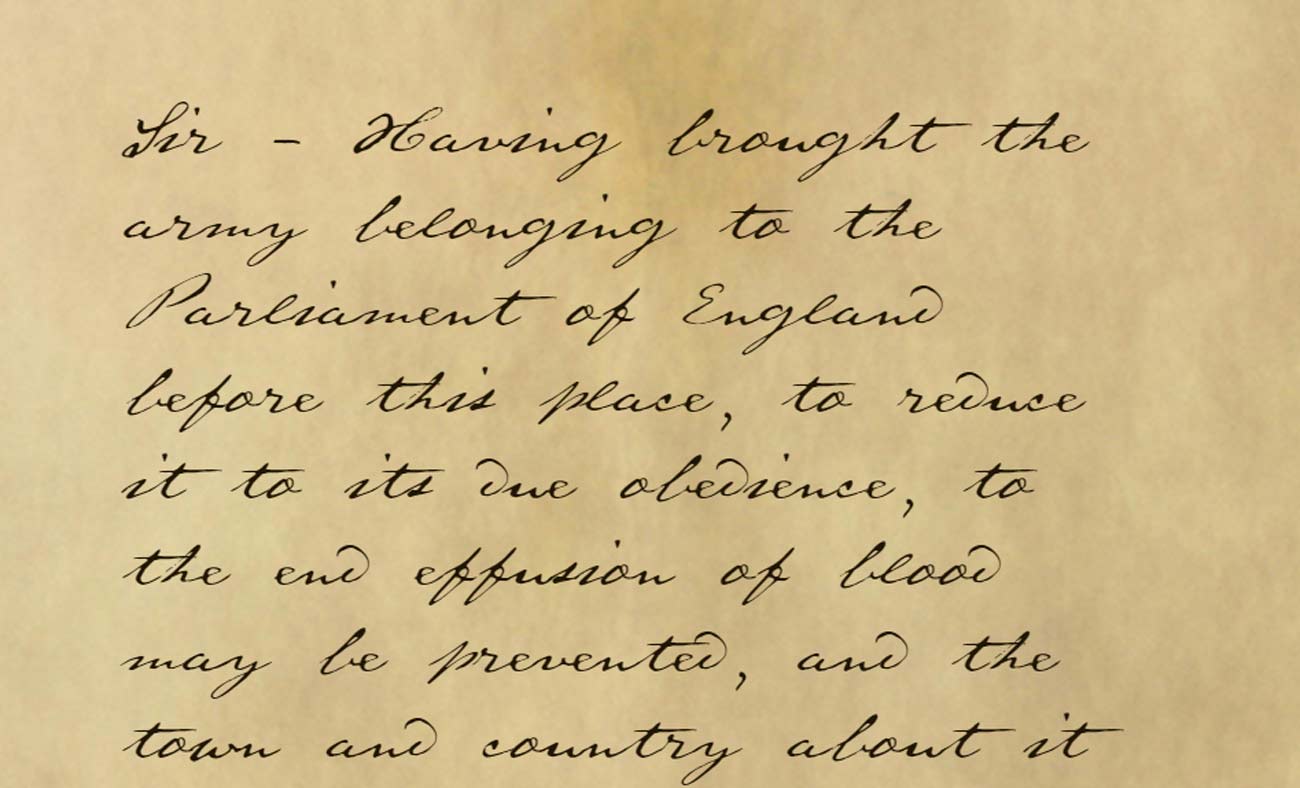 Sir - Having brought the
army belonging to the
Parliament of England
before this place, to reduce
it to its due obedience, to
the end effusion of blood
may be prevented, and the
town and country about it